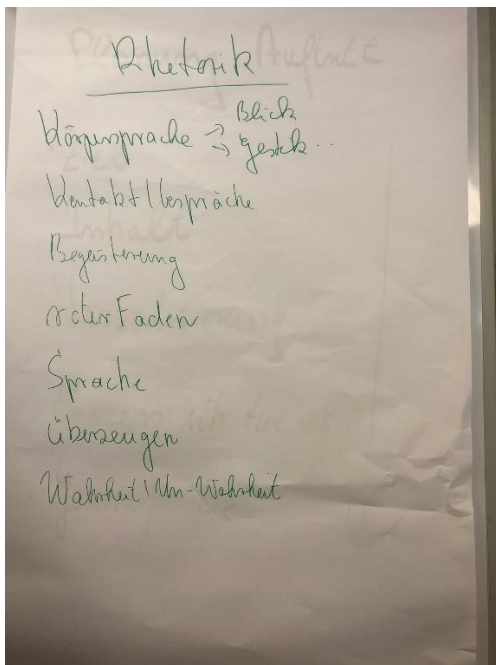 Rhetorik
Körpersprache → Blick
→ Gestik..
Kontakt / Gespräche
Begeisterung
roter Faden
Sprache
überzeugen
Wahrheit / Un-Wahrheit